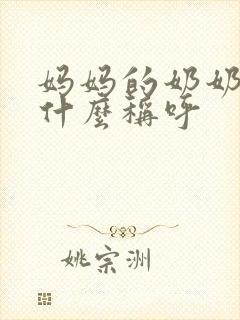 妈妈的奶奶
什麼稱呼
姚宗洲